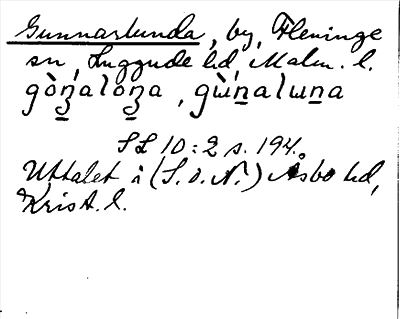 Gunnarlunda, by, Fleninge
sn, Luggude hd Malm. l.
gòn̠alon̠a, gùn̠alun̠a
SL 10:2 s. 194.
Uttalet i (S. o. N.) Åsbo hd,
Krist. l.